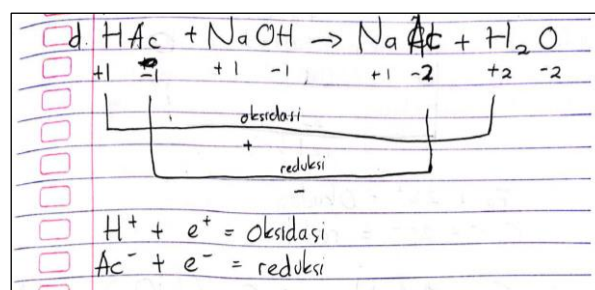 d. HAc + NaOH → NaAc + H₂O
+1 -1 +1 -1 +1 -2 +2 -2
oksidasi
+
reduksi
-
H⁺ + e⁺ = oksidasi
Ac⁻ + e⁻ = reduksi